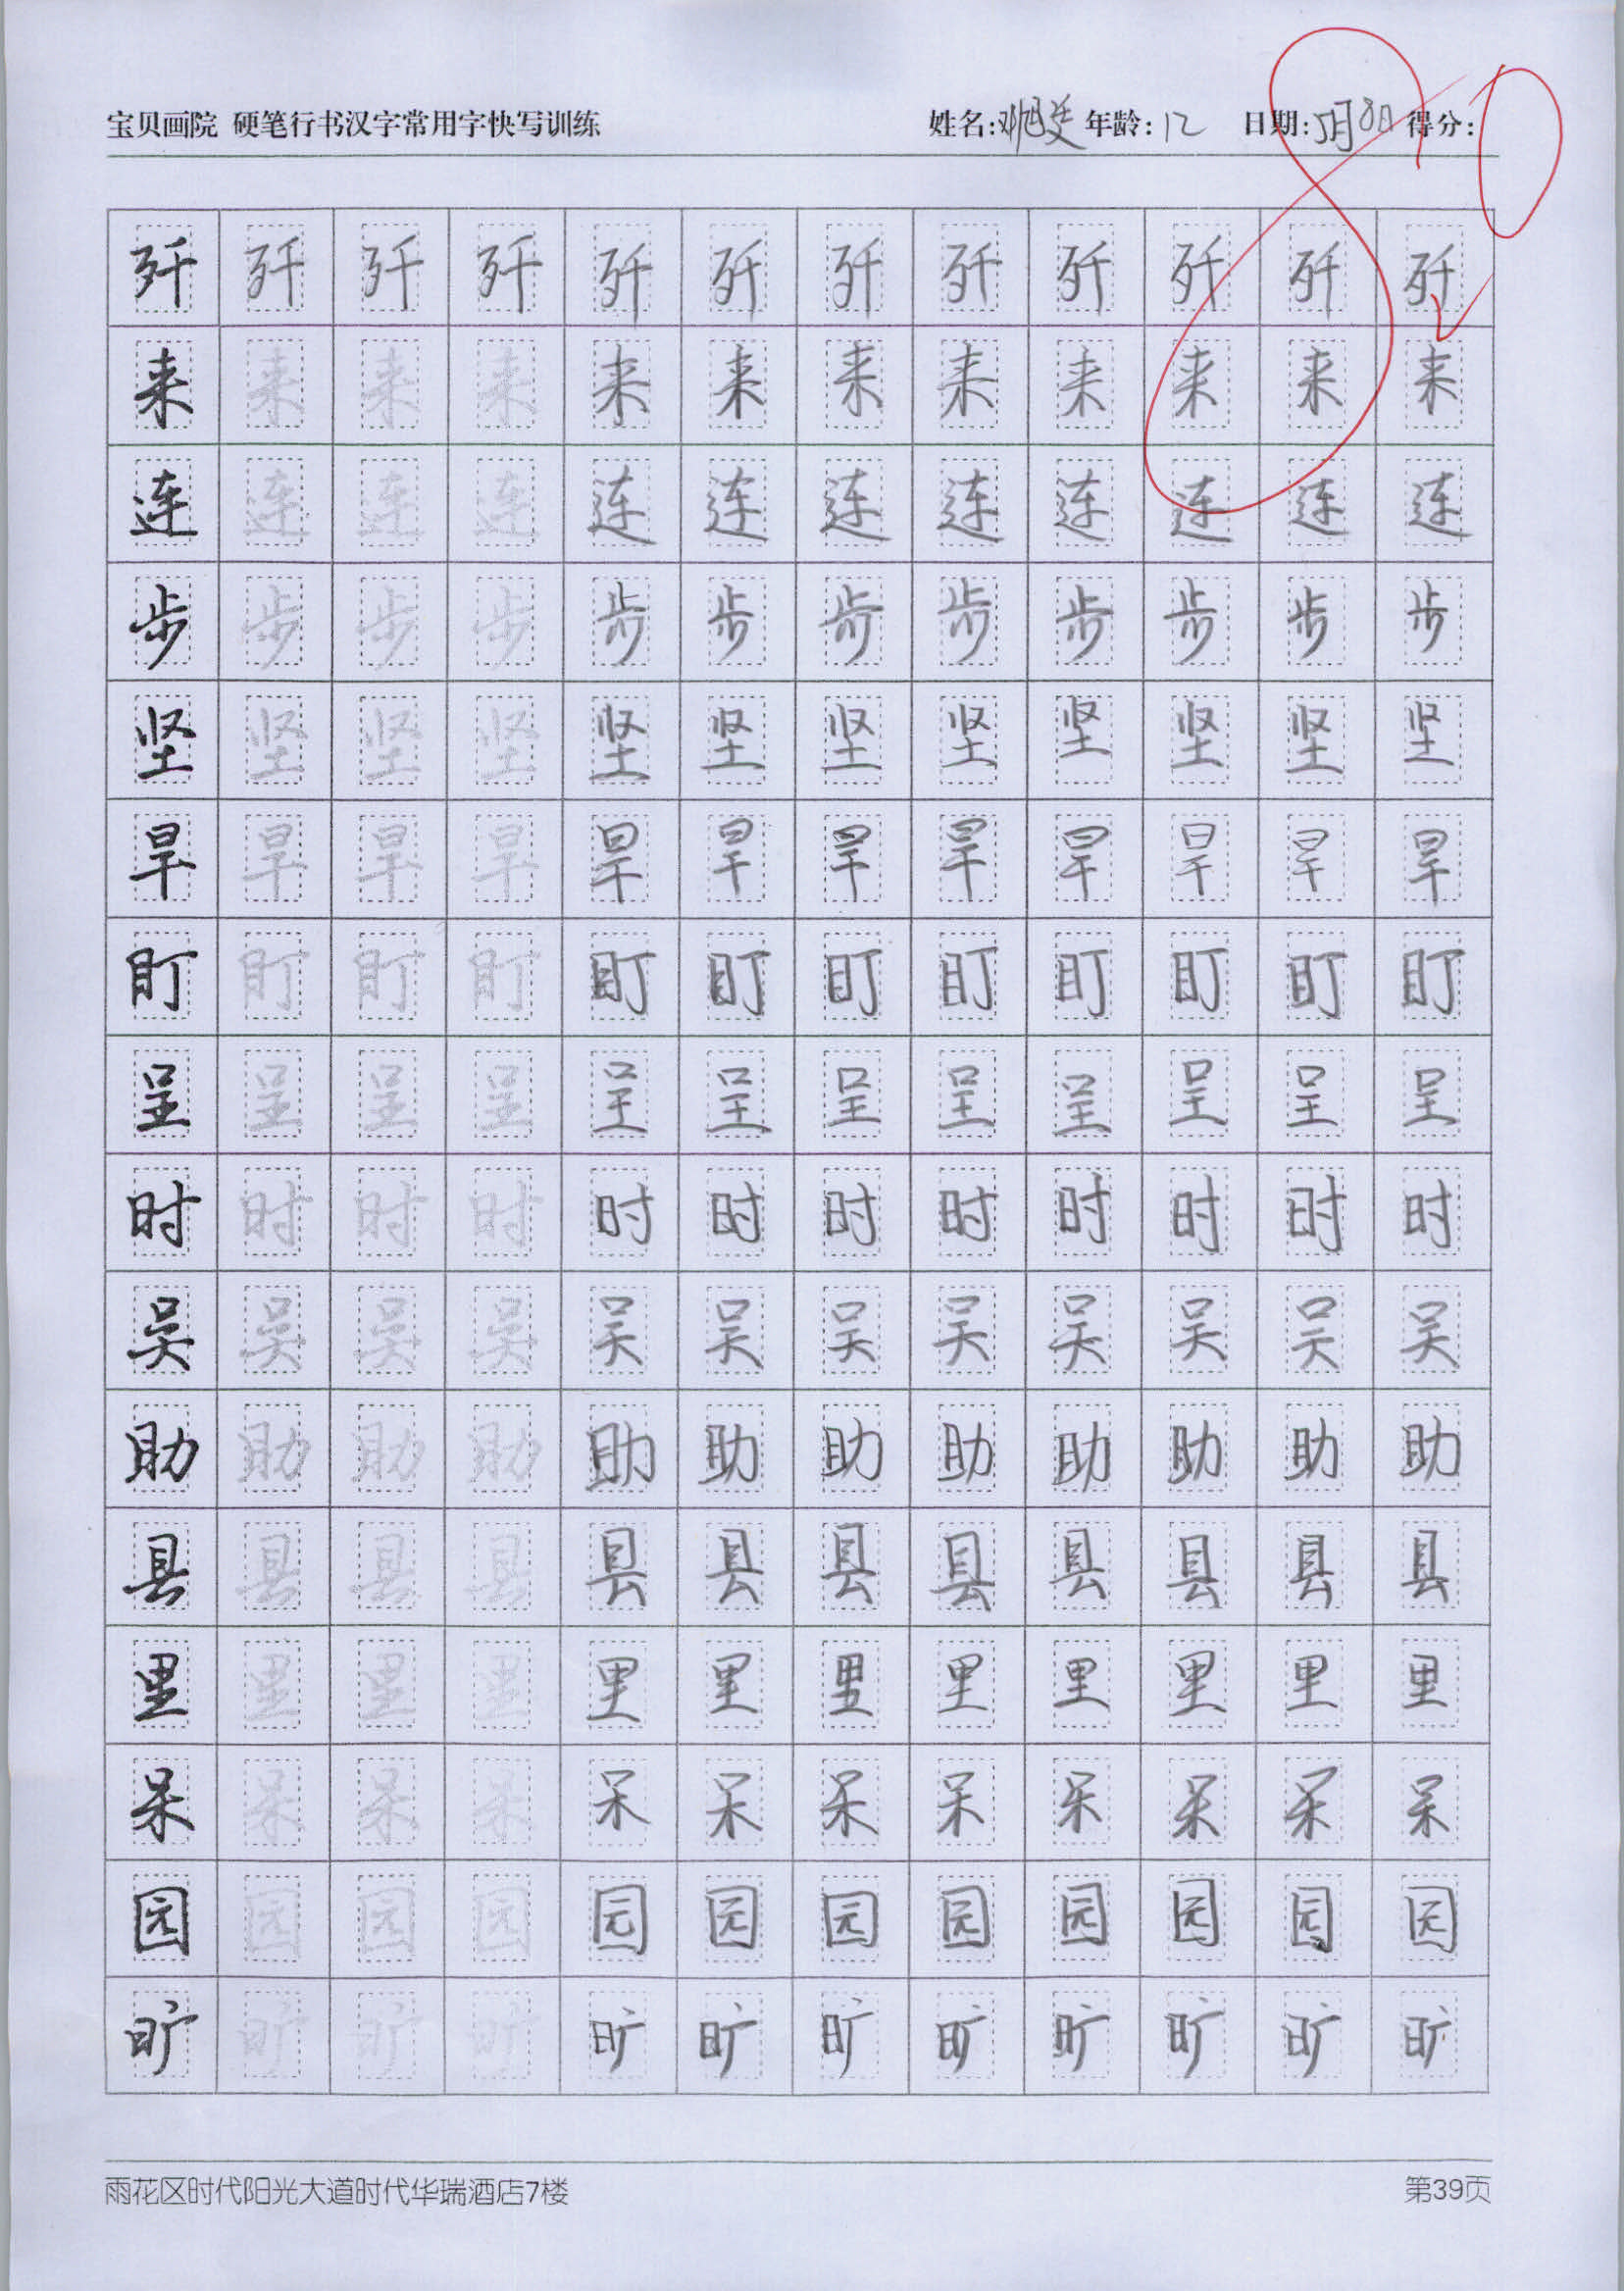 宝贝画院 硬笔行书汉字常用字快写训练 姓名: 年龄:12 日期:5月8日 得分:80
歼歼歼歼歼歼歼歼歼歼歼歼
来来来来来来来来来来来来
连连连连连连连连连连连连
步步步步步步步步步步步步
坚坚坚坚坚坚坚坚坚坚坚坚
旱旱旱旱旱旱旱旱旱旱旱旱
盯盯盯盯盯盯盯盯盯盯盯盯
呈呈呈呈呈呈呈呈呈呈呈呈
时时时时时时时时时时时时
吴吴吴吴吴吴吴吴吴吴吴吴
助助助助助助助助助助助助
县县县县县县县县县县县县
里里里里里里里里里里里里
呆呆呆呆呆呆呆呆呆呆呆呆
园园园园园园园园园园园园
旷旷旷旷旷旷旷旷旷旷旷旷
雨花区时代阳光大道时代华瑞酒店7楼 第39页